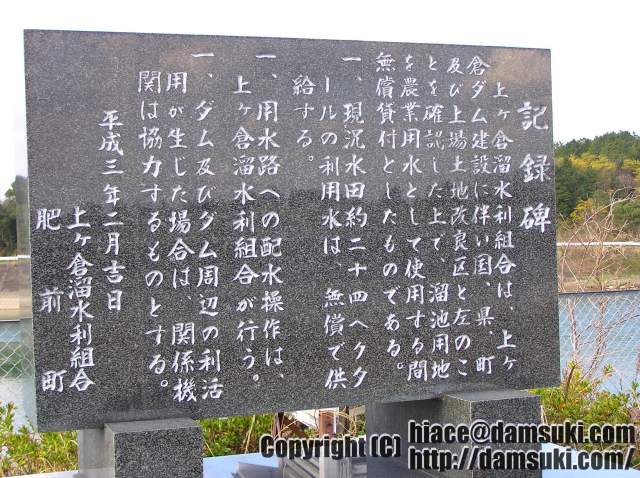 記録碑
上ヶ倉溜水利組合は、上ヶ
倉ダム建設に伴い国、県、町
及び上場土地改良区と左のこ
とを確認した上で、溜池用地
を農業用水として使用する間
無償貸付としたものである。
一、現況水田約二十四ヘクタ
ールの利用水は、無償で供
給する。
一、用水路への配水操作は、
上ヶ倉溜水利組合が行う。
一、ダム及びダム周辺の利活
用が生じた場合は、関係機
関は協力するものとする。
平成三年二月吉日
上ヶ倉溜水利組合
肥前町
Copyright (C) hiace@damsuki.com
http://damsuki.com/